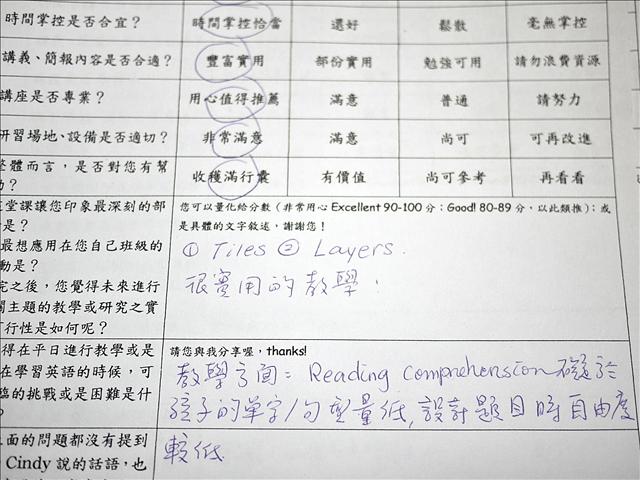 時間掌控是否合宜？ 時間掌控恰當 還好 鬆散 毫無掌控
講義、簡報內容是否合適？ 豐富實用 部份實用 勉強可用 請勿浪費資源
講座是否專業？ 用心值得推薦 滿意 普通 請努力
研習場地、設備是否適切？ 非常滿意 滿意 尚可 可再改進
整體而言，是否對您有幫
？ 收穫滿行囊 有價值 尚可參考 再看看
堂課讓您印象最深刻的部
是？
最想應用在您自己班級的
動是？
完之後，您覺得未來進行
關主題的教學或研究之實
行性是如何呢？
您可以量化給分數（非常用心 Excellent 90-100 分；Good! 80-89 分，以此類推）；或
是具體的文字敘述，謝謝您！
① Tiles ② Layers.
很實用的教學！
得在平日進行教學或是
在學習英語的時候，可
臨的挑戰或是困難是什
？
請您與我分享喔，thanks!
教學方面：Reading comprehension 礙於
孩子的單字/句型量低，設計題目時自由度
較低
面的問題都沒有提到
Cindy 說的話語，也